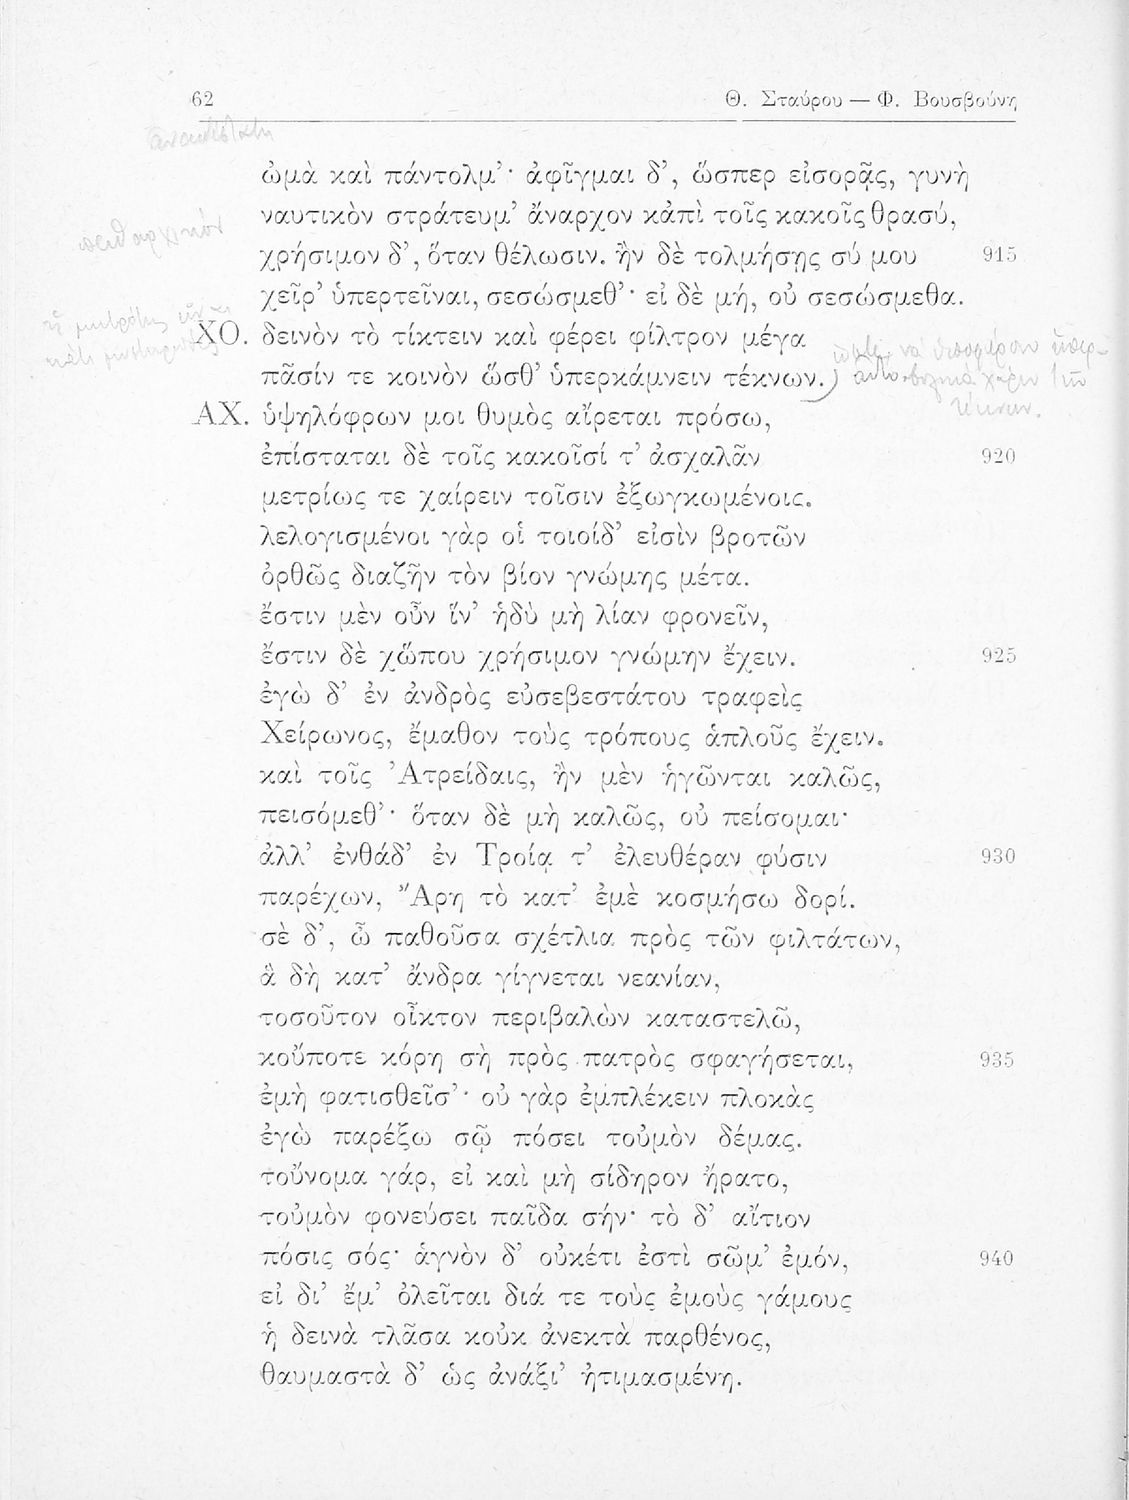 62
Θ. Σταύρου — Φ. Βουσβούνη
ὠμὰ καὶ πάντολμ’· ἀφῖγμαι δ’, ὥσπερ εἰσορᾷς, γυνὴ
ναυτικὸν στράτευμ’ ἄναρχον κἀπὶ τοῖς κακοῖς θρασύ,
πειθαρχικόν
χρήσιμον δ’, ὅταν θέλωσιν. ἢν δὲ τολμήσῃς σύ μου 915
χεῖρ’ ὑπερτεῖναι, σεσώσμεθ’· εἰ δὲ μή, οὐ σεσώσμεθα.
ἡ μητρότης εἶναι
κάτι μυστηριῶδες
ΧΟ. δεινὸν τὸ τίκτειν καὶ φέρει φίλτρον μέγα
πᾶσίν τε κοινὸν ὥσθ’ ὑπερκάμνειν τέκνων.
ὥστε νὰ ὑποφέρουν ὑπερ-
χάριν τῶν
τέκνων.
ΑΧ. ὑψηλόφρων μοι θυμὸς αἴρεται πρόσω,
ἐπίσταται δὲ τοῖς κακοῖσί τ’ ἀσχαλᾶν 920
μετρίως τε χαίρειν τοῖσιν ἐξωγκωμένοις.
λελογισμένοι γὰρ οἱ τοιοίδ’ εἰσὶν βροτῶν
ὀρθῶς διαζῆν τὸν βίον γνώμης μέτα.
ἔστιν μὲν οὖν ἵν’ ἡδὺ μὴ λίαν φρονεῖν,
ἔστιν δὲ χὤπου χρήσιμον γνώμην ἔχειν. 925
ἐγὼ δ’ ἐν ἀνδρὸς εὐσεβεστάτου τραφεὶς
Χείρωνος, ἔμαθον τοὺς τρόπους ἁπλοῦς ἔχειν.
καὶ τοῖς Ἀτρείδαις, ἢν μὲν ἡγῶνται καλῶς,
πεισόμεθ’· ὅταν δὲ μὴ καλῶς, οὐ πείσομαι·
ἀλλ’ ἐνθάδ’ ἐν Τροίᾳ τ’ ἐλευθέραν φύσιν 930
παρέχων, Ἄρη τὸ κατ’ ἐμὲ κοσμήσω δορί.
σὲ δ’, ὦ παθοῦσα σχέτλια πρὸς τῶν φιλτάτων,
ἃ δὴ κατ’ ἄνδρα γίγνεται νεανίαν,
τοσοῦτον οἶκτον περιβαλὼν καταστελῶ,
κοὔποτε κόρη σὴ πρὸς πατρὸς σφαγήσεται, 935
ἐμὴ φατισθεῖσ’· οὐ γὰρ ἐμπλέκειν πλοκὰς
ἐγὼ παρέξω σῷ πόσει τοὐμὸν δέμας.
τοὔνομα γάρ, εἰ καὶ μὴ σίδηρον ἤρατο,
τοὐμὸν φονεύσει παῖδα σήν· τὸ δ’ αἴτιον
πόσις σός· ἁγνὸν δ’ οὐκέτι ἐστὶ σῶμ’ ἐμόν, 940
εἰ δι’ ἔμ’ ὀλεῖται διά τε τοὺς ἐμοὺς γάμους
ἡ δεινὰ τλᾶσα κοὐκ ἀνεκτὰ παρθένος,
θαυμαστὰ δ’ ὡς ἀνάξι’ ἠτιμασμένη.